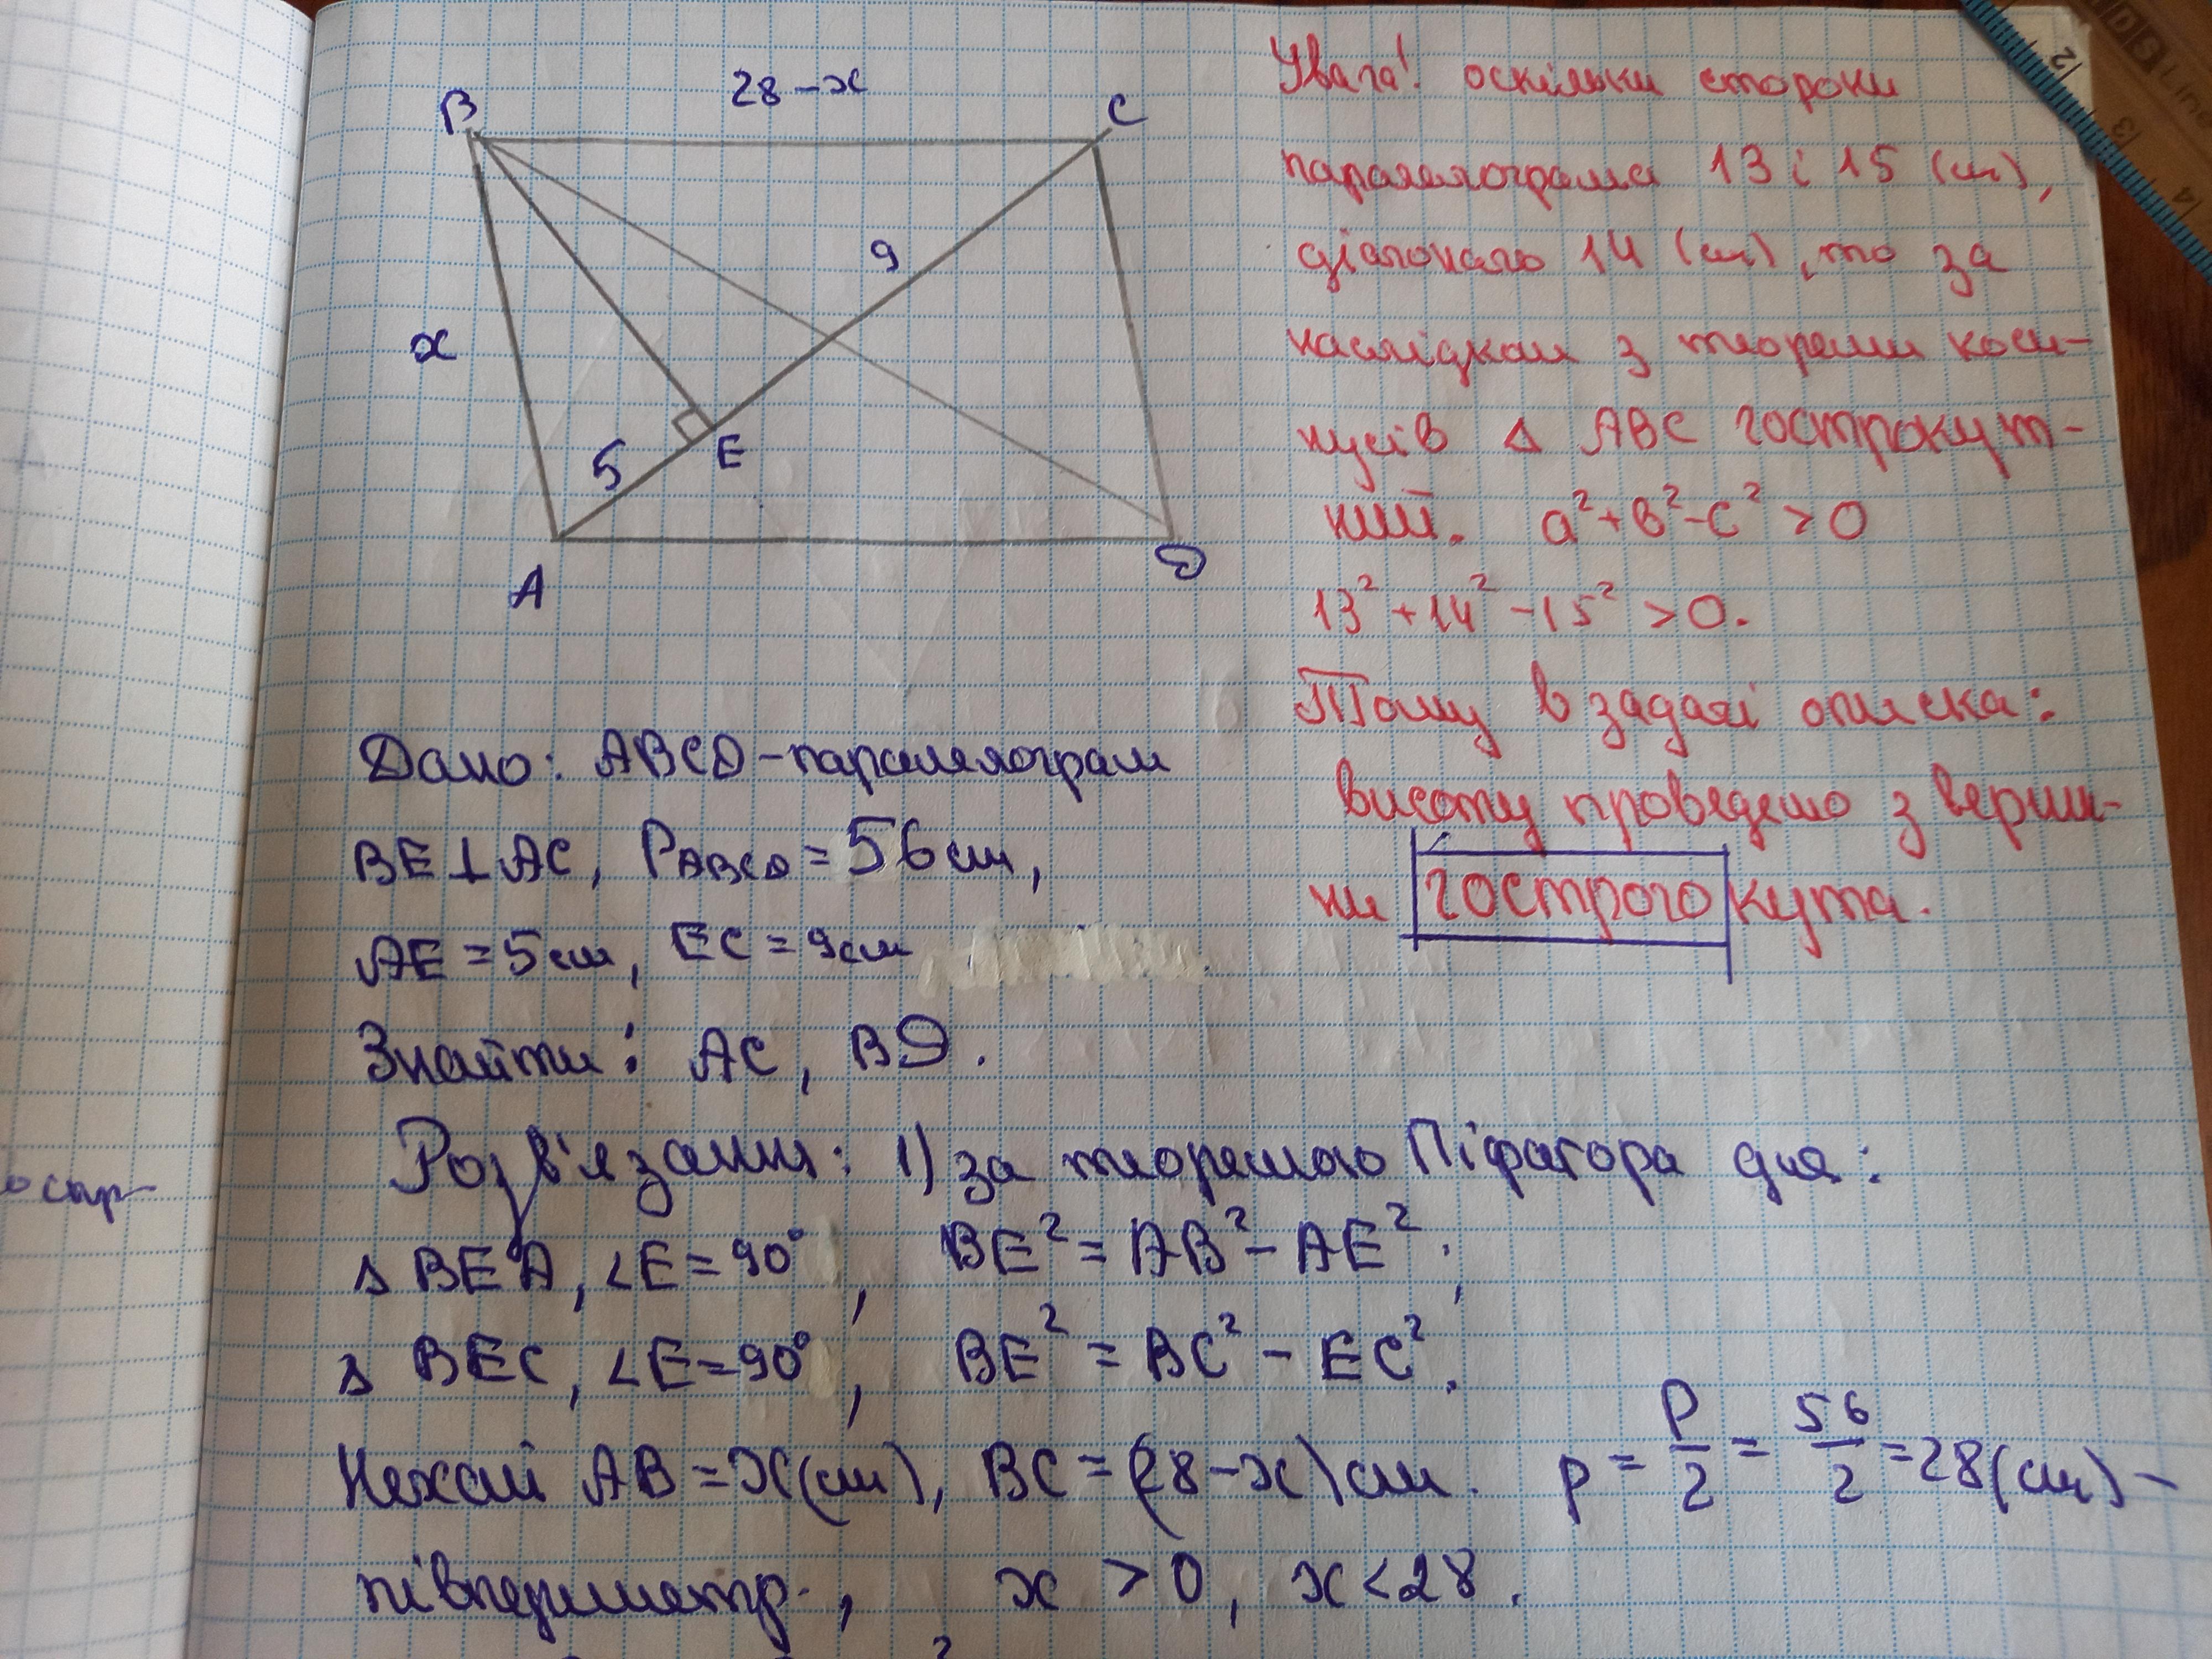 28-x
B
C
x
9
5
E
A
D
Увага! оскільки сторони
паралелограма 13 і 15 (см),
діагональ 14 (см), то за
наслідком з теореми коси-
нусів Δ ABC гострокут-
ний. a²+b²-c²>0
13²+14²-15²>0.
Тому в задачі описка:
висоту проведемо з верши-
ни гострого кута.
Дано: ABCD-паралелограм
BE⊥AC, PABCD=56см,
AE=5см, EC=9см
Знайти: AC, BD.
Розв'язання: 1) за теоремою Піфагора для:
Δ BEA, ∠E=90°, BE²=AB²-AE²;
Δ BEC, ∠E=90°, BE²=BC²-EC².
Нехай AB=x(см), BC=(28-x)см. p=P/2=56/2=28(см)-
півпериметр, x>0, x<28.
2
3
4